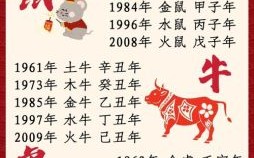 鼠
1984年 金鼠 甲子年
1996年 水鼠 丙子年
2008年 火鼠 戊子年
1961年 土牛 辛丑年
1973年 木牛 癸丑年
1985年 金牛 乙丑年
1997年 水牛 丁丑年
2009年 火牛 己丑年
牛